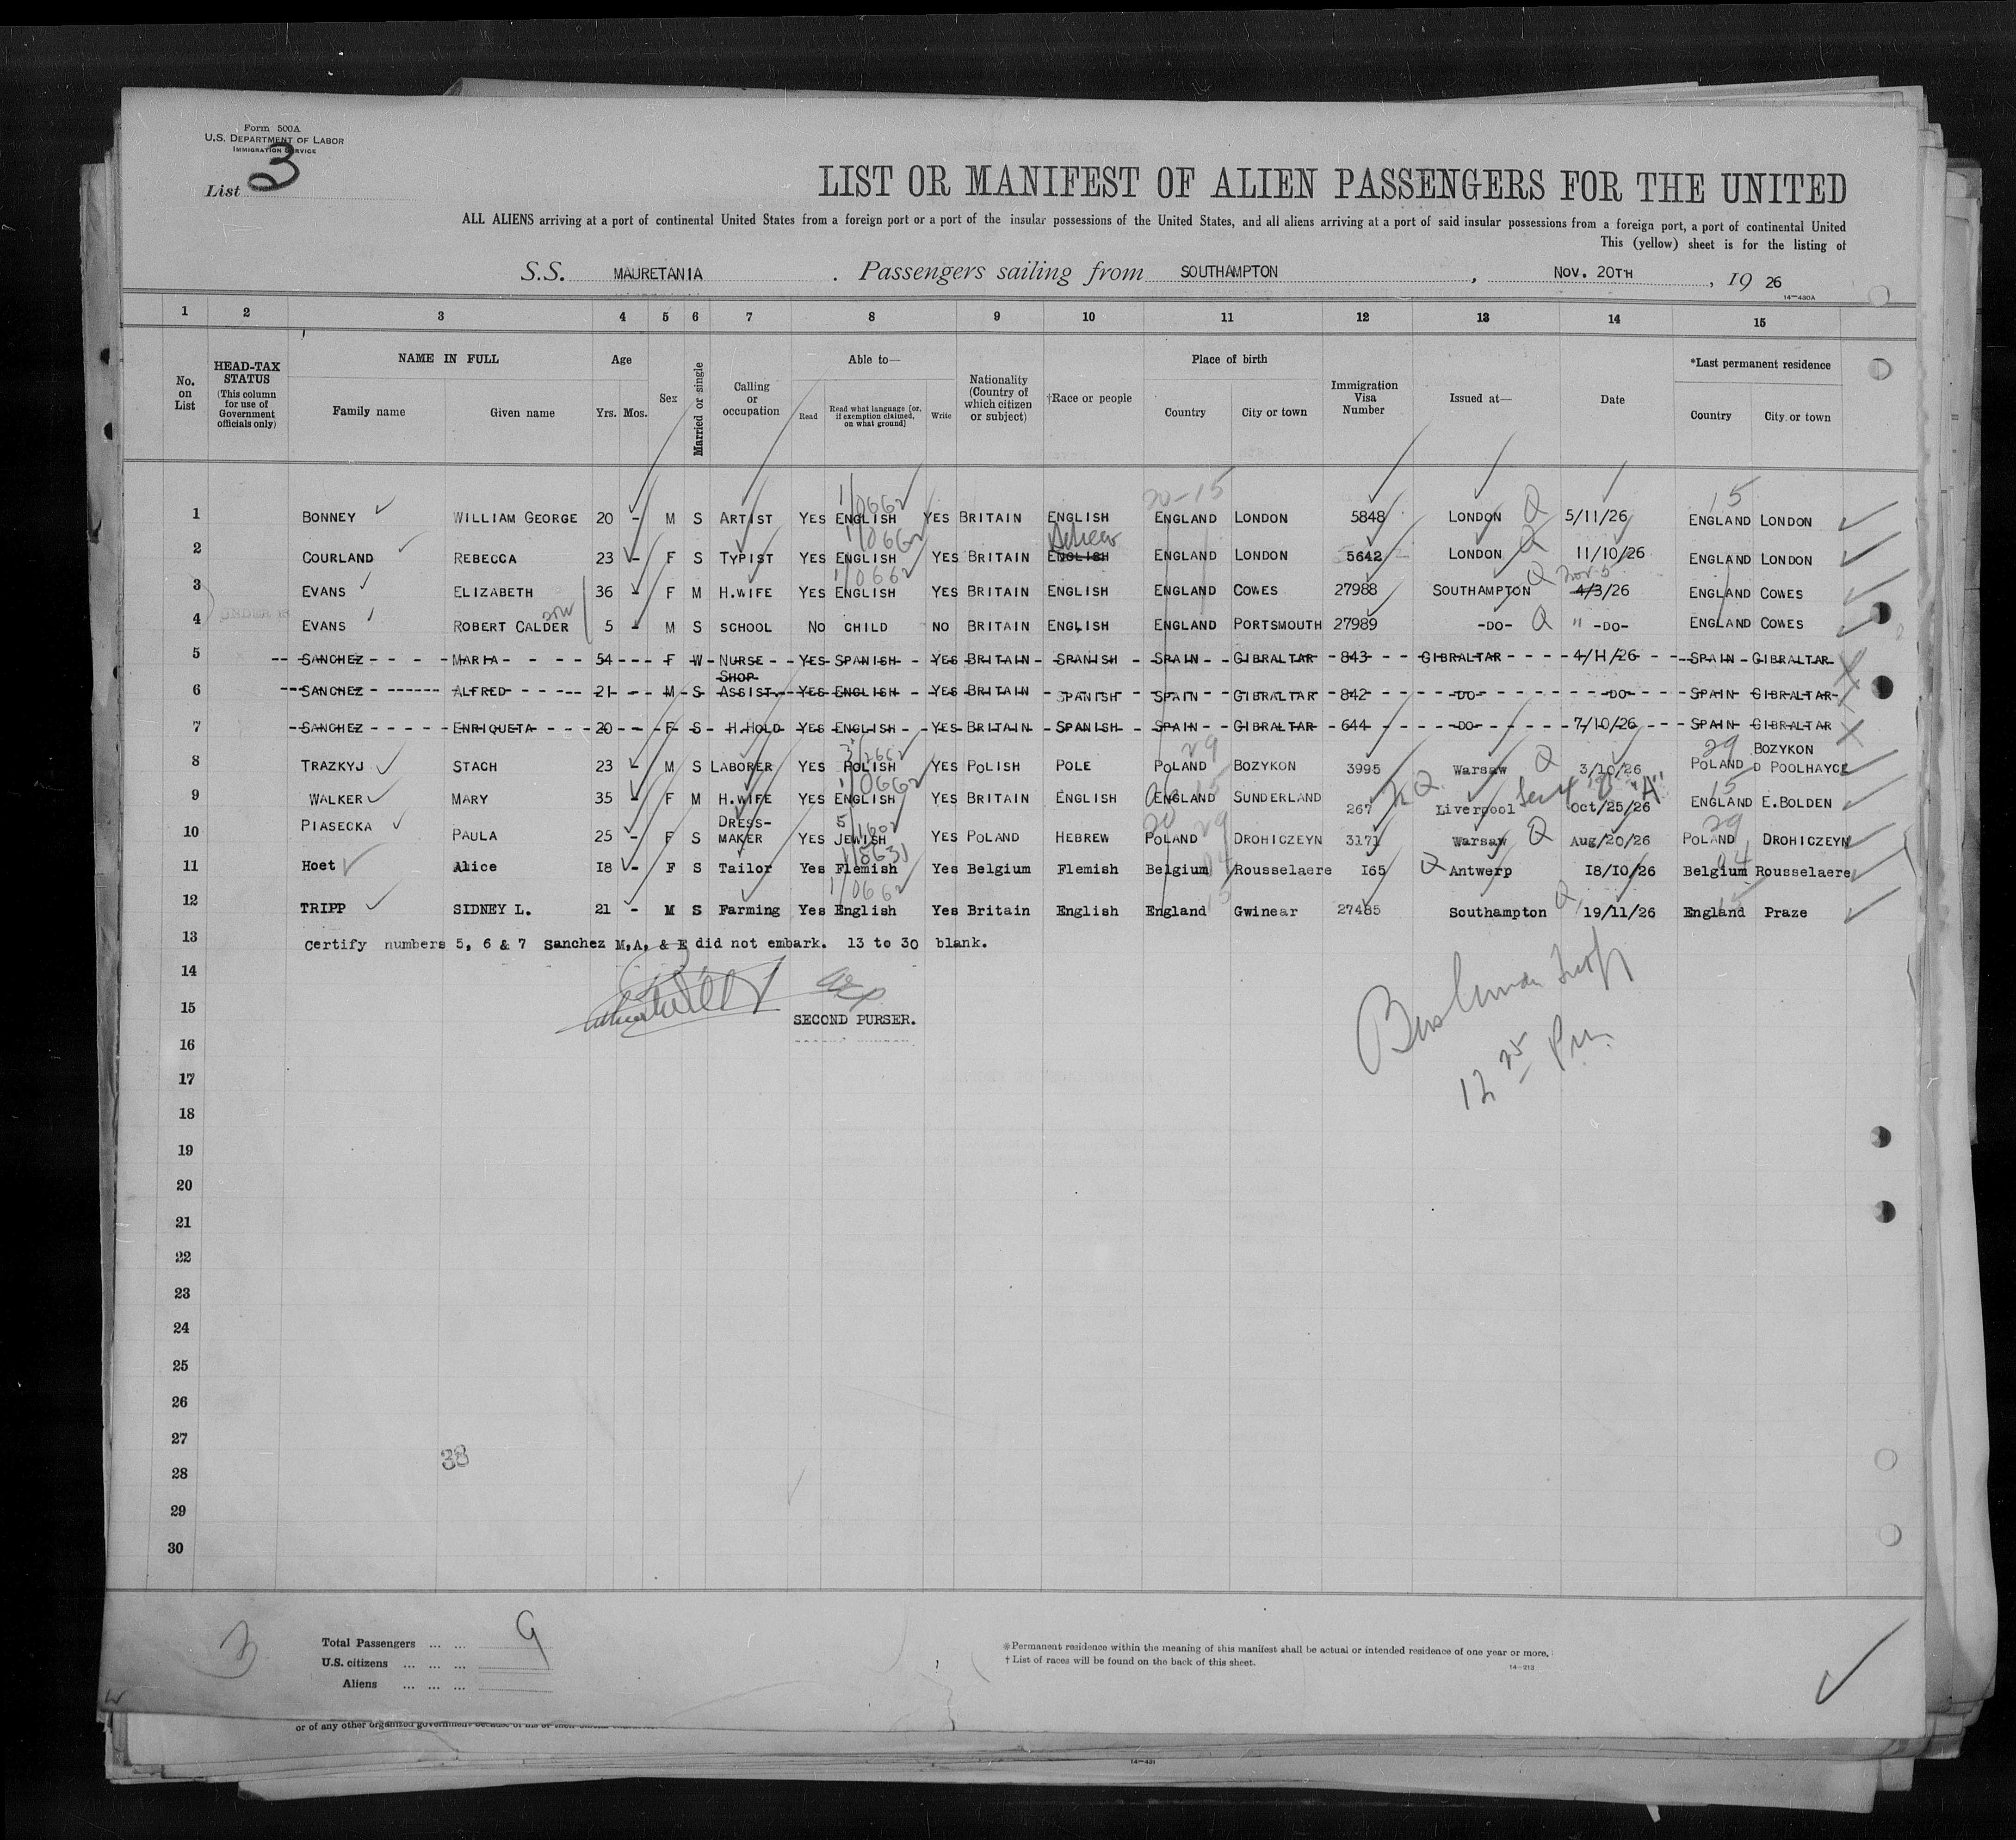 Form 500A
U.S. DEPARTMENT OF LABOR
IMMIGRATION SERVICE
List 3
LIST OR MANIFEST OF ALIEN PASSENGERS FOR THE UNITED
ALL ALIENS arriving at a port of continental United States from a foreign port or a port of the insular possessions of the United States, and all aliens arriving at a port of said insular possessions from a foreign port, a port of continental United
This (yellow) sheet is for the listing of
S.S. MAURETANIA . Passengers sailing from SOUTHAMPTON , Nov. 20TH , 19 26
14—430A
1 2 3 4 5 6 7 8 9 10 11 12 13 14 15
No. on List
HEAD-TAX STATUS (This column for use of Government officials only)
NAME IN FULL
Family name Given name
Age
Yrs. Mos.
Sex
Married or single
Calling or occupation
Able to—
Read Read what language [or, if exemption claimed, on what ground] Write
Nationality (Country of which citizen or subject)
†Race or people
Place of birth
Country City or town
Immigration Visa Number
Issued at—
Date
*Last permanent residence
Country City or town
20-15 15
1/0662
1 BONNEY WILLIAM GEORGE 20 - M S ARTIST YES ENGLISH YES BRITAIN ENGLISH ENGLAND LONDON 5848 LONDON Q 5/11/26 ENGLAND LONDON
1/0662 Hebrew
2 COURLAND REBECCA 23 - F S TYPIST YES ENGLISH YES BRITAIN ENGLISH ENGLAND LONDON 5642 LONDON Q 11/10/26 ENGLAND LONDON
1/0662 Nov-5
3 EVANS ELIZABETH 36 - F M H.WIFE YES ENGLISH YES BRITAIN ENGLISH ENGLAND COWES 27988 SOUTHAMPTON Q 4/3/26 ENGLAND COWES
UNDER 16 son
4 EVANS ROBERT CALDER 5 - M S SCHOOL NO CHILD NO BRITAIN ENGLISH ENGLAND PORTSMOUTH 27989 -DO- Q " -DO- ENGLAND COWES
5 SANCHEZ MARIA 54 F W NURSE YES SPANISH YES BRITAIN SPANISH SPAIN GIBRALTAR 843 GIBRALTAR 4/11/26 SPAIN GIBRALTAR X
6 SANCHEZ ALFRED 21 M S SHOP ASSIST. YES ENGLISH YES BRITAIN SPANISH SPAIN GIBRALTAR 842 -DO- -DO- SPAIN GIBRALTAR X
7 SANCHEZ ENRIQUETA 20 F S H.HOLD YES ENGLISH YES BRITAIN SPANISH SPAIN GIBRALTAR 644 -DO- 7/10/26 SPAIN GIBRALTAR X
29 29
8 TRAZKYJ STACH 23 - M S LABORER YES POLISH YES POLISH POLE POLAND BOZYKON 3995 Warsaw Q 3/10/26 POLAND BOZYKON D POOLHAYCE
1/0662 15 15
9 WALKER MARY 35 - F M H.WIFE YES ENGLISH YES BRITAIN ENGLISH ENGLAND SUNDERLAND 267 Liverpool "A" Oct/25/26 ENGLAND E.BOLDEN
29 29
10 PIASECKA PAULA 25 - F S DRESS-MAKER YES JEWISH YES POLAND HEBREW POLAND DROHICZEYN 3171 Warsaw Q Aug/20/26 POLAND DROHICZEYN
11 Hoet Alice 18 - F S Tailor Yes Flemish Yes Belgium Flemish Belgium Rousselaere 165 Q Antwerp 18/10/26 Belgium Rousselaere
1/0662 15 15
12 TRIPP SIDNEY L. 21 - M S Farming Yes English Yes Britain English England Gwinear 27485 Southampton Q 19/11/26 England Praze
13 Certify numbers 5, 6 & 7 Sanchez M,A, & E did not embark. 13 to 30 blank.
14
15 SECOND PURSER.
16
12 25 Pm.
17
18
19
20
21
22
23
24
25
26
27
38
28
29
30
3
Total Passengers ... ... 9
U.S. citizens ... ... ...
Aliens ... ... ...
*Permanent residence within the meaning of this manifest shall be actual or intended residence of one year or more.
† List of races will be found on the back of this sheet.
14—213
or of any other organized government because of his or their
14—431